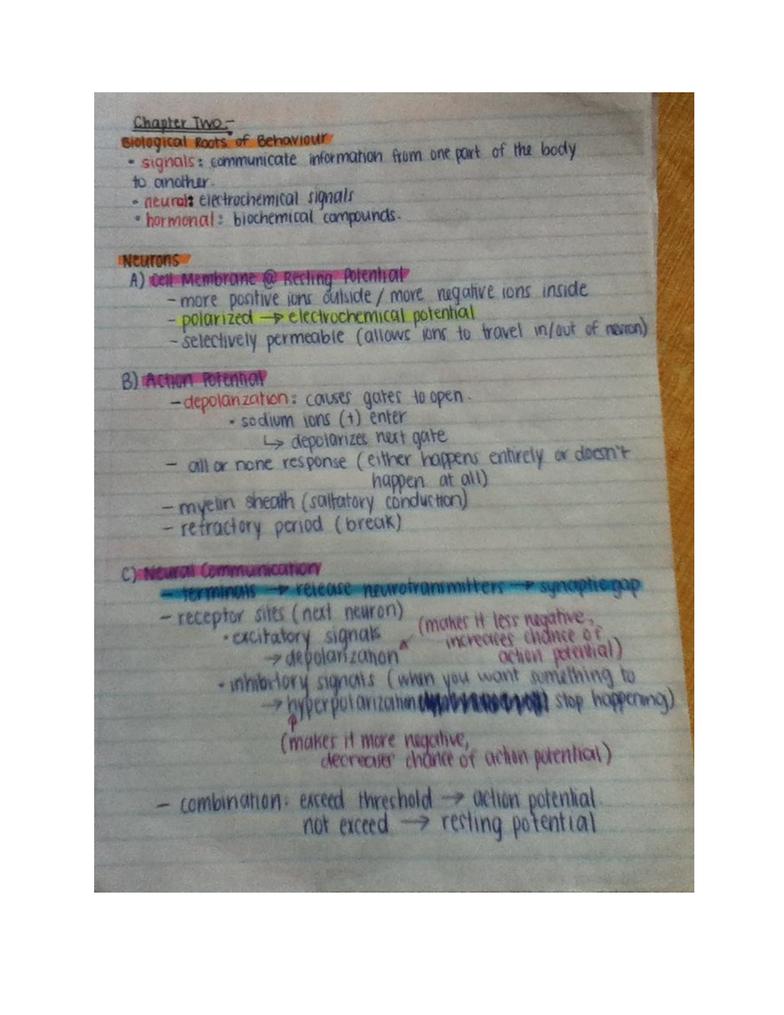 Chapter Two:-
Biological Roots of Behaviour
• signals: communicate information from one part of the body
to another.
• neural: electrochemical signals
• hormonal: biochemical compounds.
Neurons
A) Cell Membrane @ Resting Potential
- more positive ions outside / more negative ions inside
- polarized → electrochemical potential
- selectively permeable (allows ions to travel in/out of neuron)
B) Action Potential
- depolarization: causes gates to open.
• sodium ions (+) enter
↳ depolarizes next gate
- all or none response (either happens entirely or doesn't
happen at all)
- myelin sheath (saltatory conduction)
- refractory period (break)
C) Neural Communication
- terminals → release neurotransmitters → synaptic gap
- receptor sites (next neuron)
• excitatory signals
→ depolarization
(makes it less negative,
increases chance of
action potential)
• inhibitory signals (when you want something to
→ hyperpolarization stop happening)
(makes it more negative,
decreases chance of action potential)
- combination: exceed threshold → action potential.
not exceed → resting potential